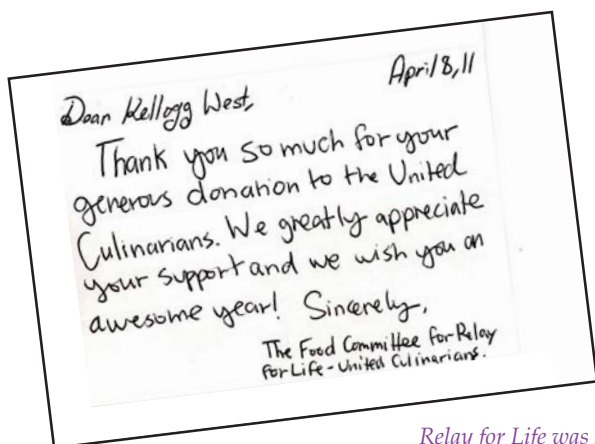 April 8, 11
Dear Kellogg West,
Thank you so much for your
generous donation to the United
Culinarians. We greatly appreciate
your support and we wish you an
awesome year! Sincerely,
The Food Committee for Relay
for Life - United Culinarians.
Relay for Life was